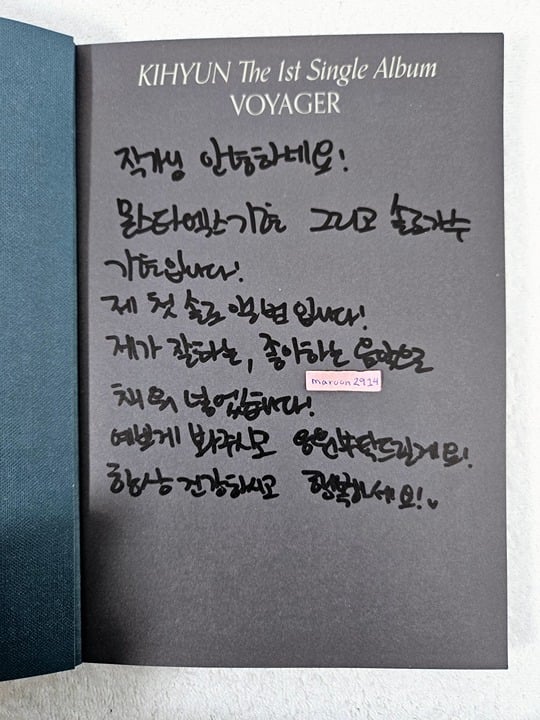 KIHYUN The 1st Single Album
VOYAGER
작가님 안녕하세요!
몬스타엑스 기현 그리고 솔로가수
기현입니다!
제 첫 솔로 앨범입니다!
제가 잘하는, 좋아하는 음악으로
maroon2914
채워 넣었습니다!
예쁘게 봐주시고 응원 부탁드릴게요!
항상 건강하시고 행복하세요!